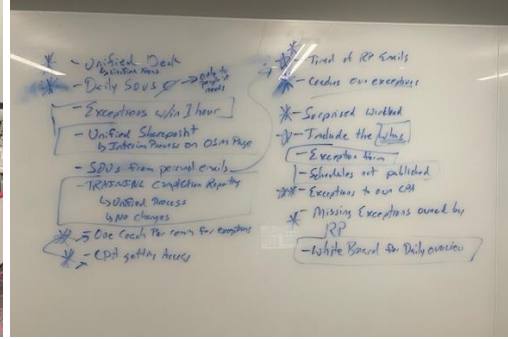 - Unified Desk
↳ Unified Focus
- Daily SOUs → only to people it needs
- Exceptions w/in 1 hour
- Unified Sharepoint
↳ Interim Process on OSM Page
- SOUs from personal emails
- TRAINING Completion Reporting
↳ Unified Process
↳ No changes
- One Coach Per team for exceptions
- CPH getting Access
- Tired of RP Emails
- Coaches own exceptions
- Surprised workload
- Include the "whys"
- Exception form
- Schedules not published
- Exceptions to own CPH
- Missing Exceptions owned by RP
- White Board for Daily overview